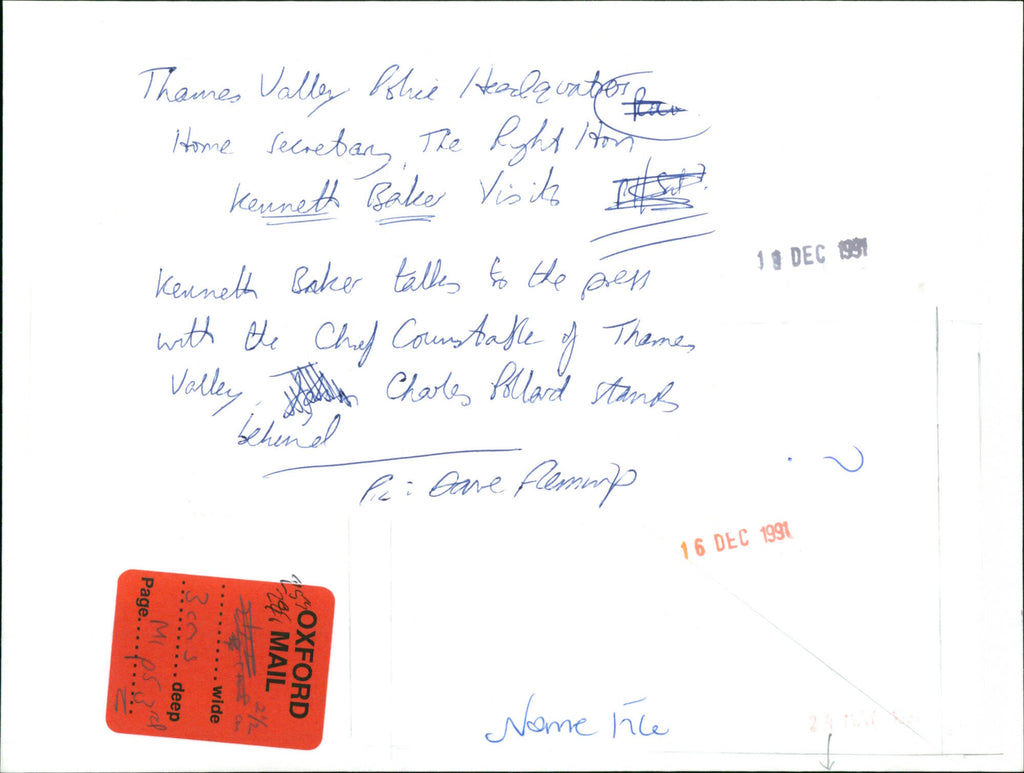 Thames Valley Police Headquaters
Home Secretary, The Right Hon
Kenneth Baker Visits
Kenneth Baker talks to the press
with the Chief Counstable of Thames
Valley, Charles Pollard stands
behind
Pic: Dave Fleming
19 DEC 1991
16 DEC 1991
OXFORD
MAIL
wide
3 cms deep
Page
Name File